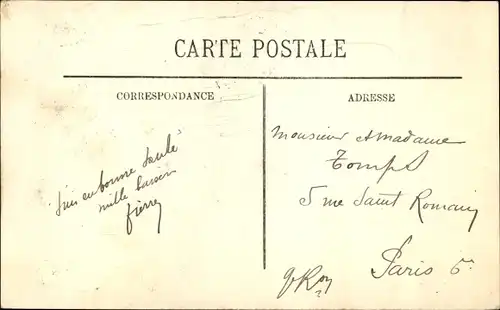 CARTE POSTALE
CORRESPONDANCE
Suis en bonne Santé
mille baisers
Pierre
ADRESSE
Monsieur et Madame
Tomps
5 rue Saint Romain
Paris 6e